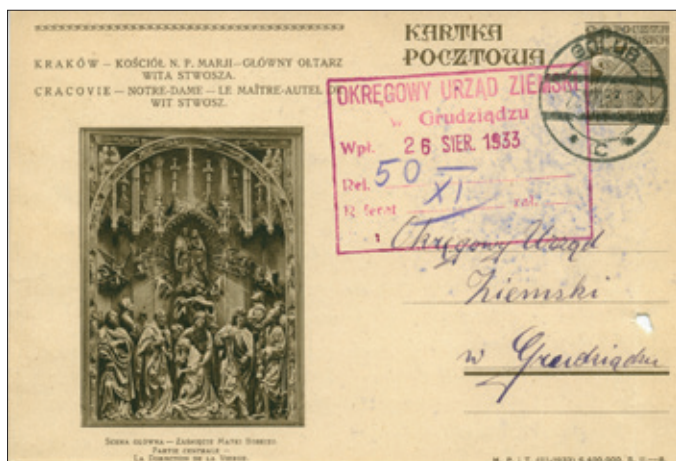 KARTKA
POCZTOWA
KRAKÓW – KOŚCIÓŁ N. P. MARJI – GŁÓWNY OŁTARZ
WITA STWOSZA.
CRACOVIE – NOTRE-DAME – LE MAÎTRE-AUTEL DE
WIT STWOSZ.
GOLUB
C
OKRĘGOWY URZĄD ZIEMSKI
w Grudziądzu
Wpł. 26 SIER. 1933
Rej. 50
R ferat XI zał.
Okręgowy Urząd
Ziemski
w Grudziądzu
SCENA GŁÓWNA – ZAŚNIĘCIE MATKI BOSKIEJ.
PARTIE CENTRALE –
LA DORMITION DE LA VIERGE.